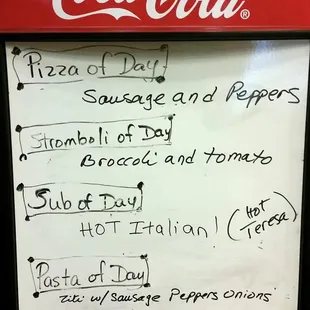 Coca-Cola®
Pizza of Day
Sausage and Peppers
Stromboli of Day
Broccoli and tomato
Sub of Day
HOT Italian! (HOT
Teresa)
Pasta of Day
Ziti w/ Sausage Peppers Onions